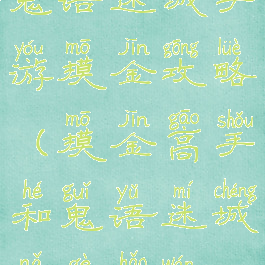 鬼语迷城手
yóu mō jīn gōng lüè
游摸金攻略
mō jīn gāo shǒu
（摸金高手
hé guǐ yǔ mí chéng
和鬼语迷城